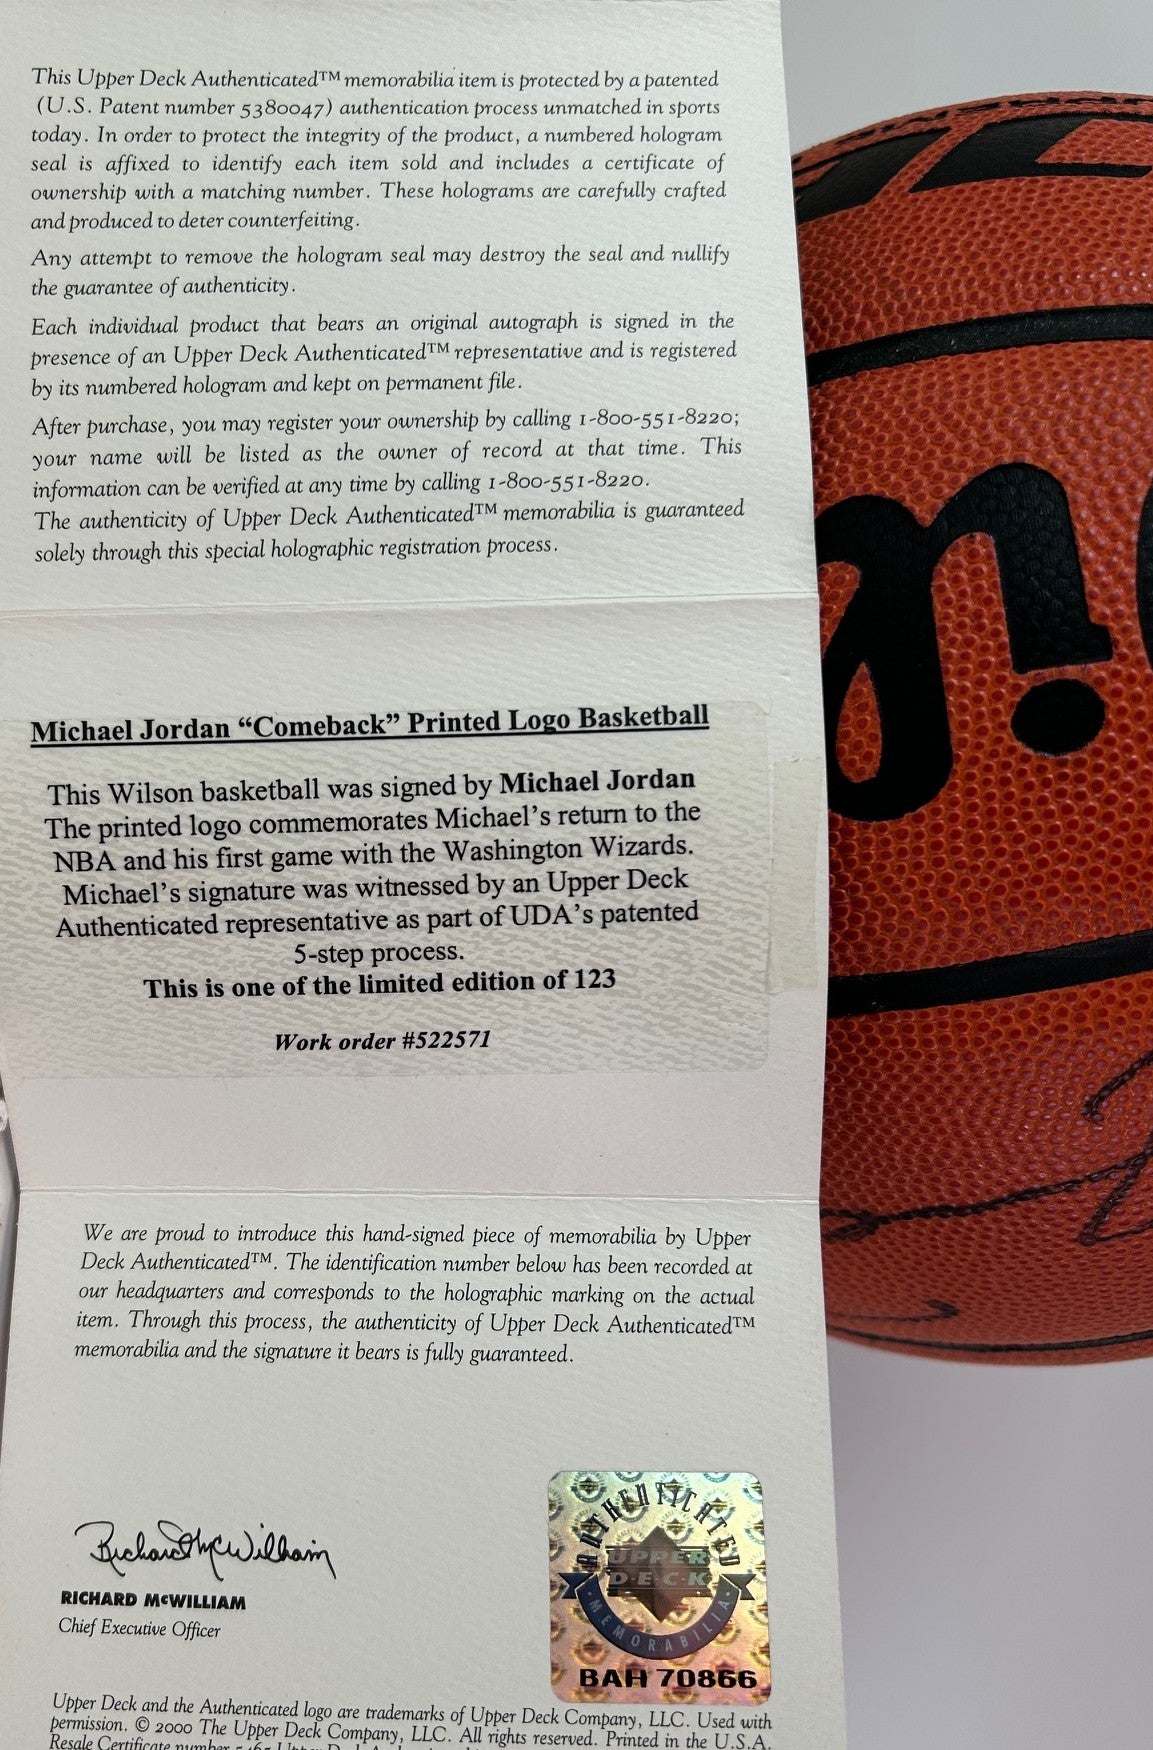 This Upper Deck Authenticated™ memorabilia item is protected by a patented
(U.S. Patent number 5380047) authentication process unmatched in sports
today. In order to protect the integrity of the product, a numbered hologram
seal is affixed to identify each item sold and includes a certificate of
ownership with a matching number. These holograms are carefully crafted
and produced to deter counterfeiting.
Any attempt to remove the hologram seal may destroy the seal and nullify
the guarantee of authenticity.
Each individual product that bears an original autograph is signed in the
presence of an Upper Deck Authenticated™ representative and is registered
by its numbered hologram and kept on permanent file.
After purchase, you may register your ownership by calling 1-800-551-8220;
your name will be listed as the owner of record at that time. This
information can be verified at any time by calling 1-800-551-8220.
The authenticity of Upper Deck Authenticated™ memorabilia is guaranteed
solely through this special holographic registration process.
Michael Jordan “Comeback” Printed Logo Basketball
This Wilson basketball was signed by Michael Jordan
The printed logo commemorates Michael’s return to the
NBA and his first game with the Washington Wizards.
Michael’s signature was witnessed by an Upper Deck
Authenticated representative as part of UDA’s patented
5-step process.
This is one of the limited edition of 123
Work order #522571
We are proud to introduce this hand-signed piece of memorabilia by Upper
Deck Authenticated™. The identification number below has been recorded at
our headquarters and corresponds to the holographic marking on the actual
item. Through this process, the authenticity of Upper Deck Authenticated™
memorabilia and the signature it bears is fully guaranteed.
Richard McWilliam
RICHARD McWILLIAM
Chief Executive Officer
AUTHENTICATED
UPPER
D·E·C·K
MEMORABILIA
BAH 70866
Upper Deck and the Authenticated logo are trademarks of Upper Deck Company, LLC. Used with
permission. © 2000 The Upper Deck Company, LLC. All rights reserved. Printed in the U.S.A.
Resale Certificate number